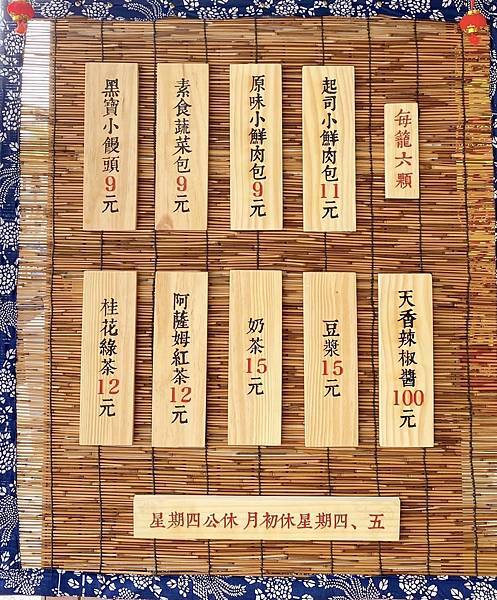 每籠六顆
起司小鮮肉包11元
原味小鮮肉包9元
素食蔬菜包9元
黑寶小饅頭9元
天香辣椒醬100元
豆漿15元
奶茶15元
阿薩姆紅茶12元
桂花綠茶12元
星期四公休 月初休星期四、五